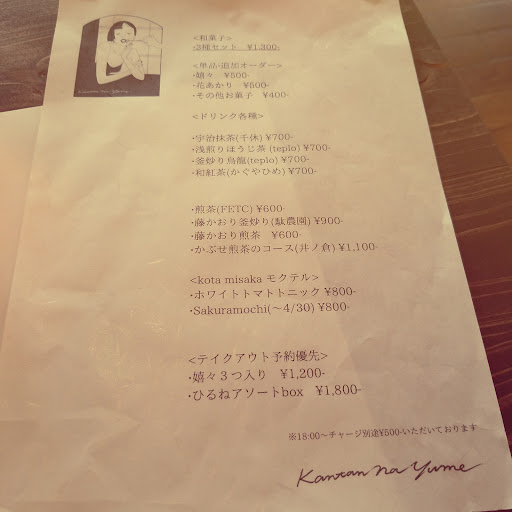 Kantan na Yume
<和菓子>
・3種セット ¥1,300-
<単品・追加オーダー>
・嬉々 ¥500-
・花あかり ¥500-
・その他お菓子 ¥400-
<ドリンク各種>
・宇治抹茶(千休) ¥700-
・浅煎りほうじ茶 (teplo) ¥700-
・釜炒り烏龍(teplo) ¥700-
・和紅茶(かぐやひめ) ¥700-
・煎茶(FETC) ¥600-
・藤かおり釜炒り(駄農園) ¥900-
・藤かおり煎茶 ¥600-
・かぶせ煎茶のコース(井ノ倉) ¥1,100-
<kota misaka モクテル>
・ホワイトトマトトニック ¥800-
・Sakuramochi(〜4/30) ¥800-
<テイクアウト予約優先>
・嬉々３つ入り ¥1,200-
・ひるねアソートbox ¥1,800-
※18:00〜チャージ別途¥500-いただいております
Kantan na Yume